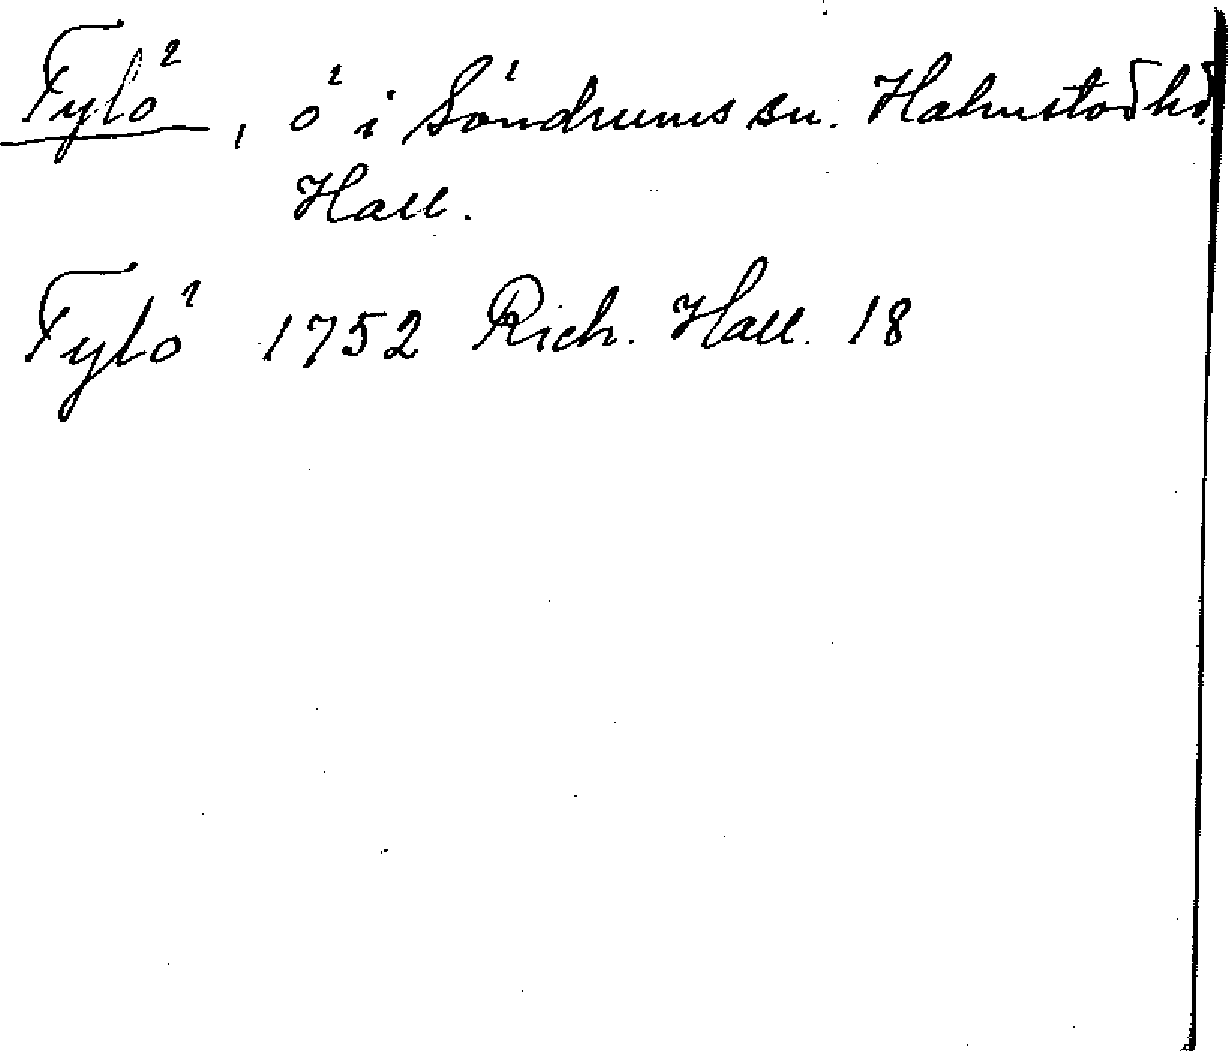 Tylö, ö i Söndrums sn. Halmstad hd.
Hall.
Tylö 1752 Rich. Hall. 18